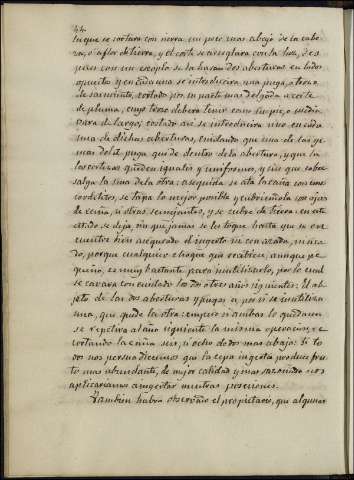 44
luque se cortara con sierra un poco mas abajo de la cabe-
za, ó a flor de tierra, y el corte se arreglara con la hoz, des
pues con un escoplo se la haran dos aberturas en lados
opuestos y en cada una se introducira una puga, ó trozo
de sarmiento, cortado por su parte mas delgada a corte
de pluma, cuyo trozo debera tener como un pie, o media
vara de largo; cortado asi se introducira uno en cada
una de dichas aberturas, cuidando que una de las ye-
mas de la puga quede dentro de la abertura, y que
las cortezas queden iguales y uniformes, y sin que sobre-
salga la una de la otra: a seguida se ata la caña con unos
cordelitos, se tapa lo mejor posible y cubriendola con ojas
de ceña, ú otras semejantes, y se cubre de tierra: en este
estado se deja, sin que jamas se les toque hasta que se en-
cuentre bien asegurado el ingerto ni con azada, ni ara-
do, porque cualquier choque que recibiere, aunque pe-
queño, es muy bastante para inutilizarlo, por lo cual
se cavara con cuidado los dos ó tres años siguientes: El ob-
jeto de las dos aberturas y pugas es por si se inutiliza
una, que quede la otra: empero si ambas lo quedaran
se repetira al año siguiente la misma operacion, re
cortando la ceña seis, ú ocho dedos mas abajo: Si to
dos nos persuadieremos que la cepa ingerta produce fru-
to mas abundante, de mejor calidad y mas sazonado nos
aplicariamos a ingertar nuestras posesiones.
Tambien habra observado el propietario, que algunas